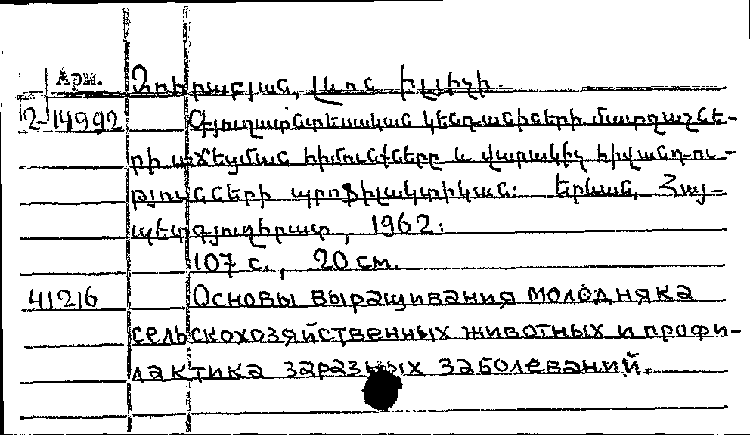 Арм. Զուրաբյան, Լևոն Իլյիչի.
2-14992 Գյուղատնտեսական կենդանիների մատղաշնե-
րի աճեցման հիմունքները և վարակիչ հիվանդու-
թյունների պրոֆիլակտիկան: Երևան, Հայ-
պետգյուղհրատ, 1962:
107 с., 20 см.
41216 Основы выращивания молодняка
сельскохозяйственных животных и профи-
лактика заразных заболеваний.